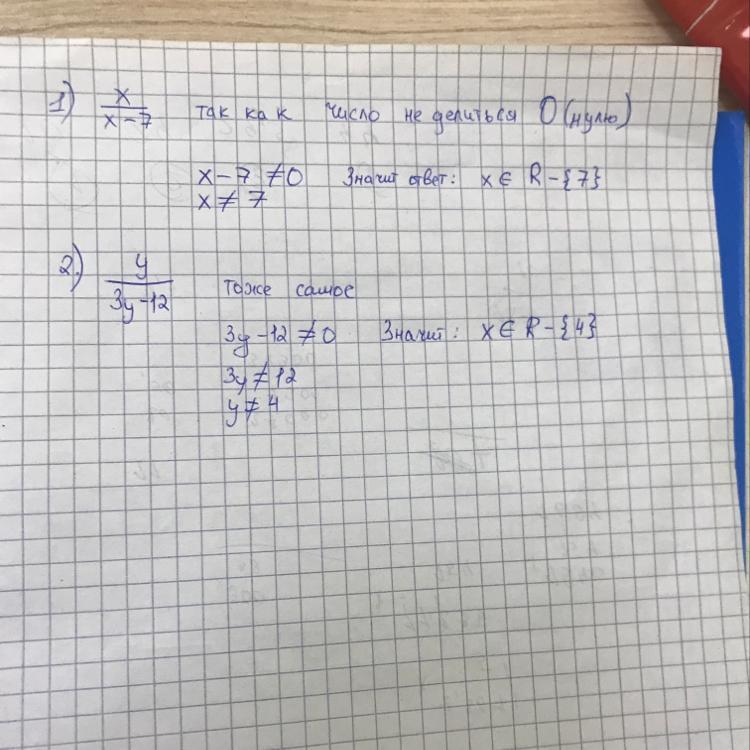 1) x/(x-7) так как число не делиться 0 (нулю)
x-7≠0 Значит ответ: x∈ R-{7}
x≠7
2.) y/(3y-12) тоже самое
3y-12≠0 Значит: x∈ R-{4}
3y≠12
y≠4